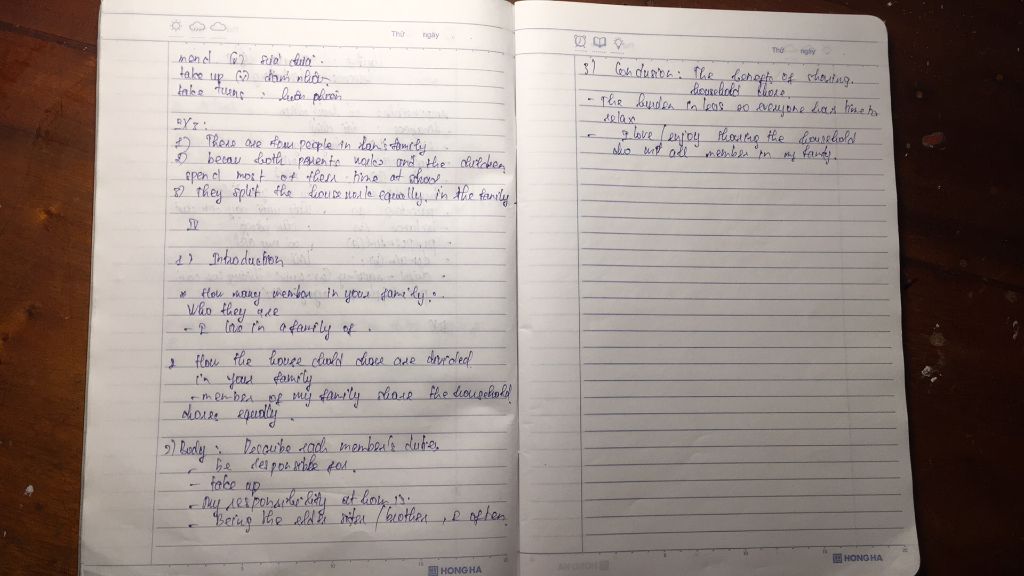 Thứ ngày
mend (v) sửa chữa.
take up (v) đảm nhận
take turns : luân phiên
1) There are four people in family
2) becau both parents works and the children
spend most of their time at shool
3) They split the housework equally, in the family
IV
1) Introduction
* How many member in your family?
Who they are
- I live in a family of .
2 How the house chold chore are divided
in your family
- member of my family share the household
chores equally.
2) Body : Describe each member's duties
- be responsible for.
- take up
- My responsibility at hom is.
- Being the elder sister / brother , I often
HONG HA
Thứ ngày
3) Conclusion : The benefits of sharing.
household chore.
- The burden is less so everyone has time to
relax
- I love / enjoy sharing the household
cho all member in my family.
HONG HA